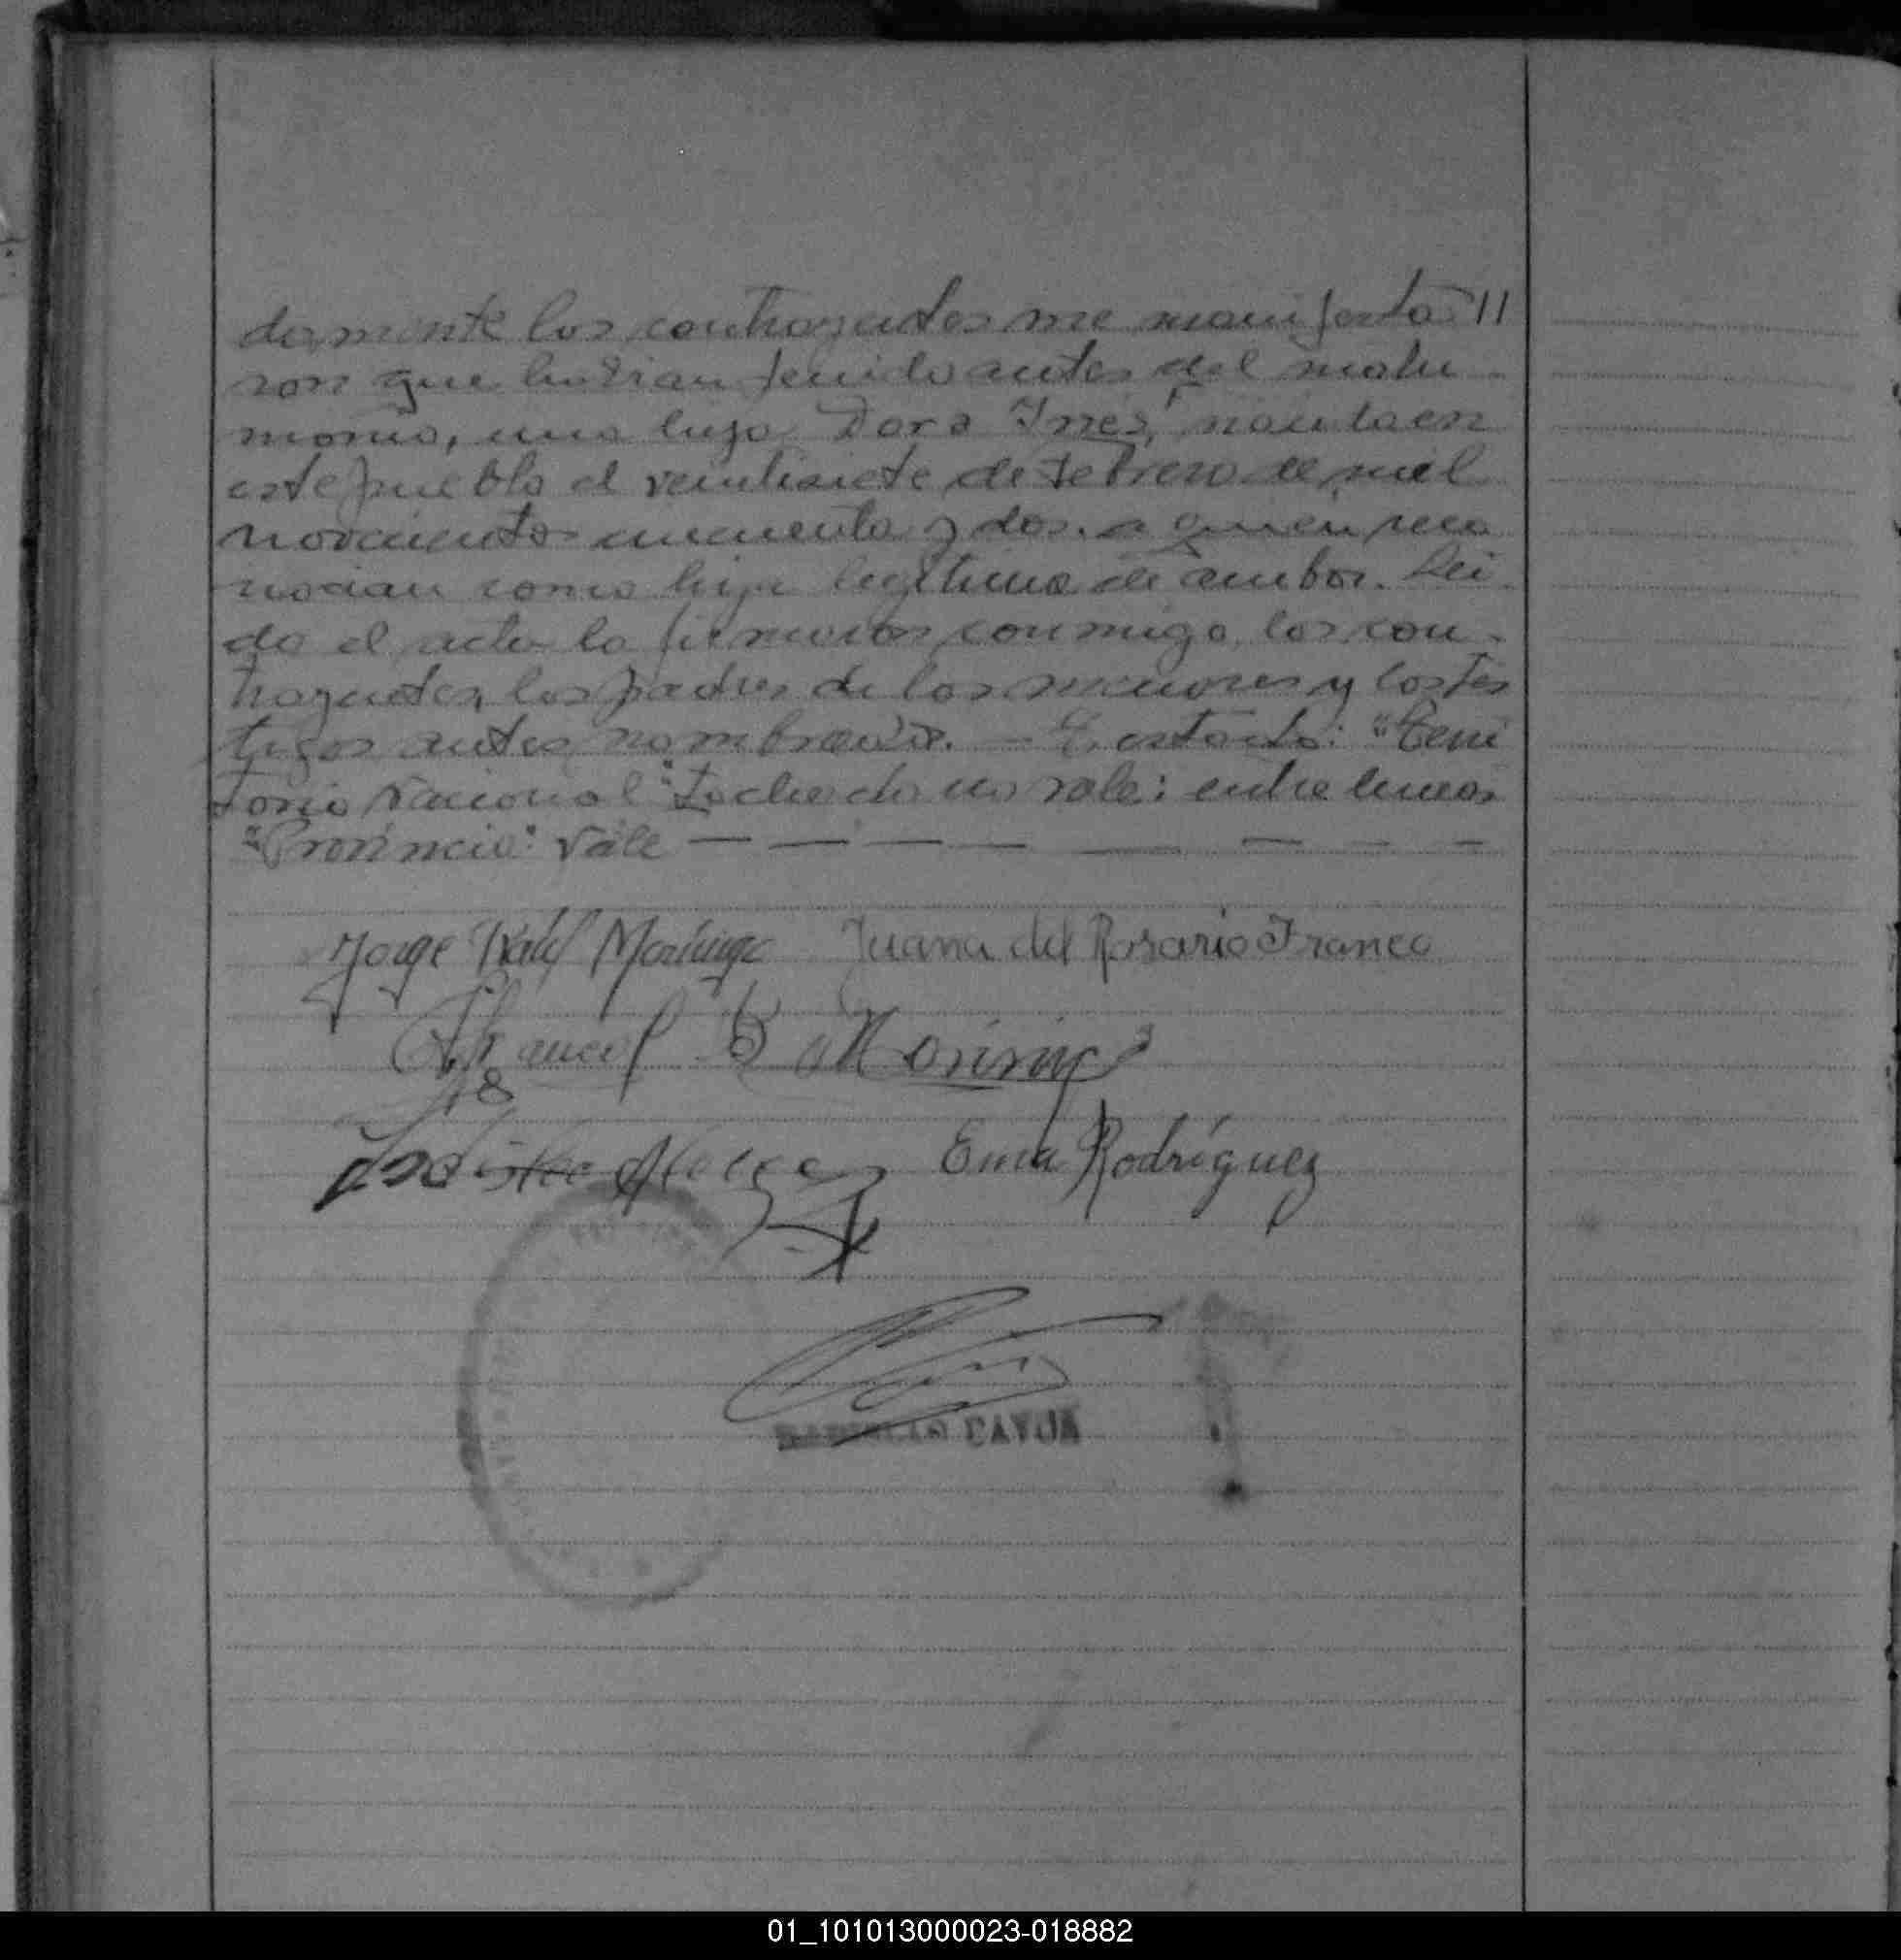 damente los contrayentes me manifesta 11
ron que habian tenido antes del matri
monio, una hija Dora Inés, nacida en
este pueblo el veintisiete de Febrero de mil
novecientos cincuenta y dos. a quien reco
nocian como hija legitima de ambos. Lei
da el acta la firmaron conmigo, los con-
trayentes, los padres de los menores y los tes
tigos antes nombrados. — testado: "Terri
torio Nacional" Tachado no vale: entre lineas
"Provincia": Vale — — — — — — —
Jorge Moringo Juana del Rosario Franco
Franco Moringo
Ema Rodríguez
CAYON
01_101013000023-018882